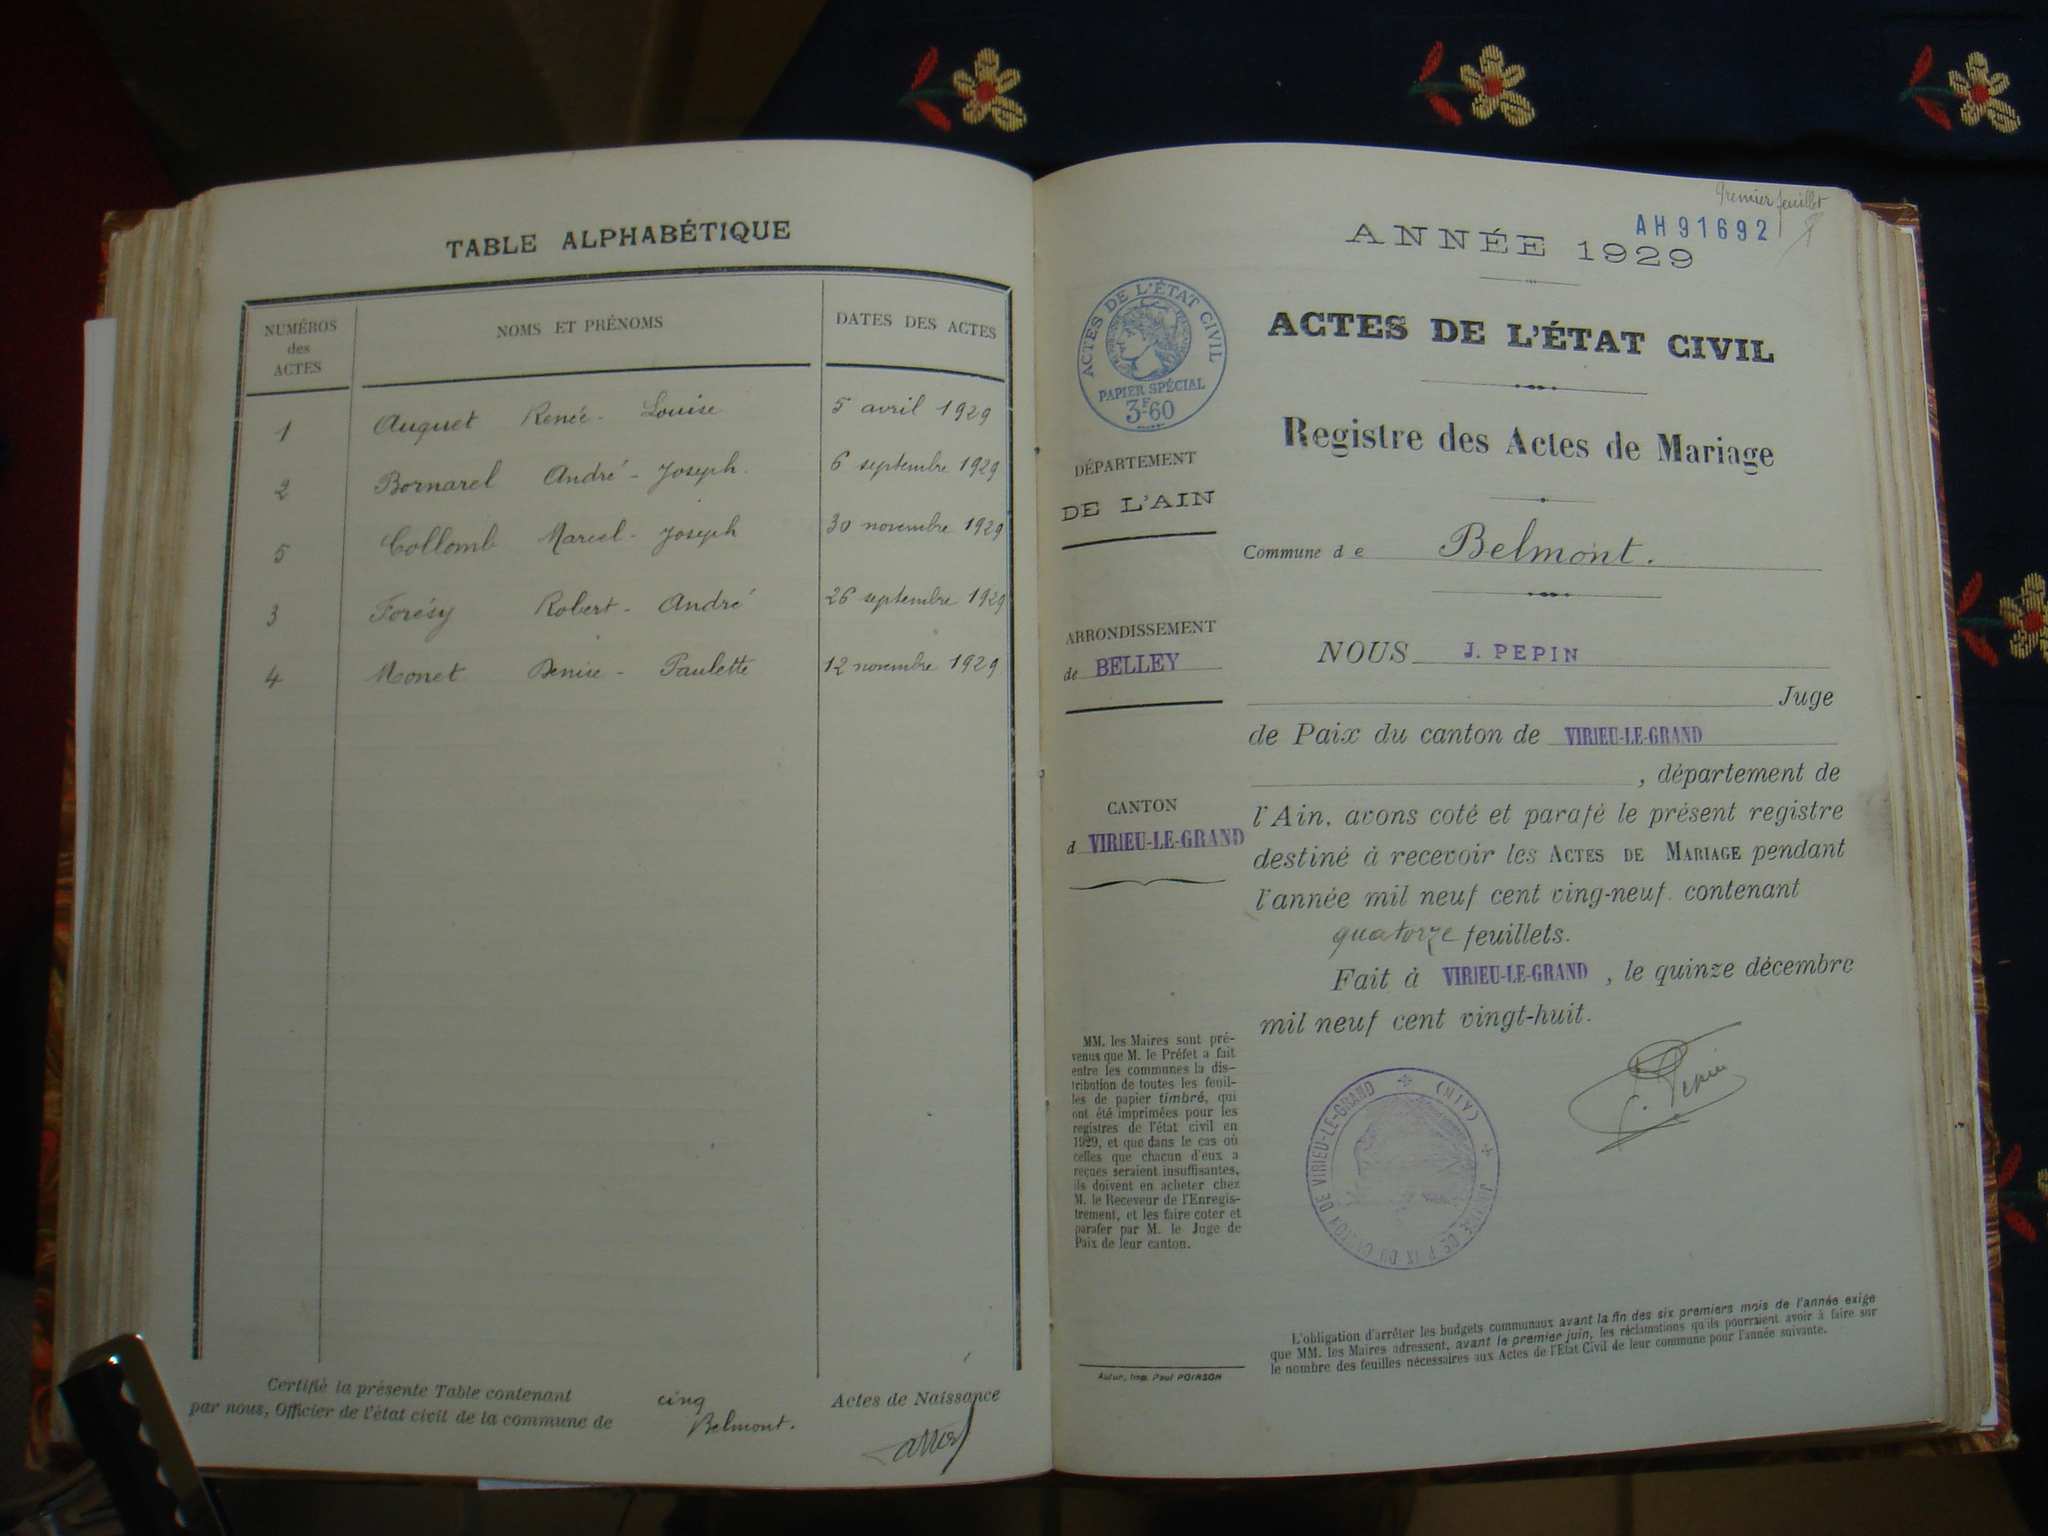 TABLE ALPHABÉTIQUE
NUMÉROS
des
ACTES
NOMS ET PRÉNOMS
DATES DES ACTES
1 Auguet Renée - Louise 5 avril 1929
2 Bornarel André - Joseph. 6 septembre 1929
5 Collomb Marcel - Joseph 30 novembre 1929
3 Forésy Robert - André 26 septembre 1929
4 Monet Denise - Paulette 12 novembre 1929
Certifié la présente Table contenant cinq Actes de Naissance
par nous, Officier de l'état civil de la commune de Belmont.
Premier feuillet
AH91692
ANNÉE 1929
ACTES DE L'ÉTAT CIVIL
PAPIER SPÉCIAL
3F60
ACTES DE L'ÉTAT CIVIL
Registre des Actes de Mariage
DÉPARTEMENT
DE L'AIN
Commune de Belmont.
ARRONDISSEMENT
de BELLEY
NOUS J. PEPIN
Juge
de Paix du canton de VIRIEU-LE-GRAND
, département de
CANTON
d VIRIEU-LE-GRAND
l'Ain, avons coté et parafé le présent registre
destiné à recevoir les ACTES DE MARIAGE pendant
l'année mil neuf cent ving-neuf. contenant
quatorze feuillets.
Fait à VIRIEU-LE-GRAND , le quinze décembre
mil neuf cent vingt-huit.
MM. les Maires sont pré-
venus que M. le Préfet a fait
entre les communes la dis-
tribution de toutes les feuil-
les de papier timbré, qui
ont été imprimées pour les
registres de l'état civil en
1929, et que dans le cas où
celles que chacun d'eux a
reçues seraient insuffisantes,
ils doivent en acheter chez
M. le Receveur de l'Enregis-
trement, et les faire coter et
parafer par M. le Juge de
Paix de leur canton.
J. Pepin
JUSTICE DE PAIX DU CANTON DE VIRIEU-LE-GRAND (AIN)
L'obligation d'arrêter les budgets communaux avant la fin des six premiers mois de l'année exige
que MM. les Maires adressent, avant le premier juin, les réclamations qu'ils pourraient avoir à faire sur
le nombre des feuilles nécessaires aux Actes de l'Etat Civil de leur commune pour l'année suivante.
Autur, Imp. Paul POIRSON